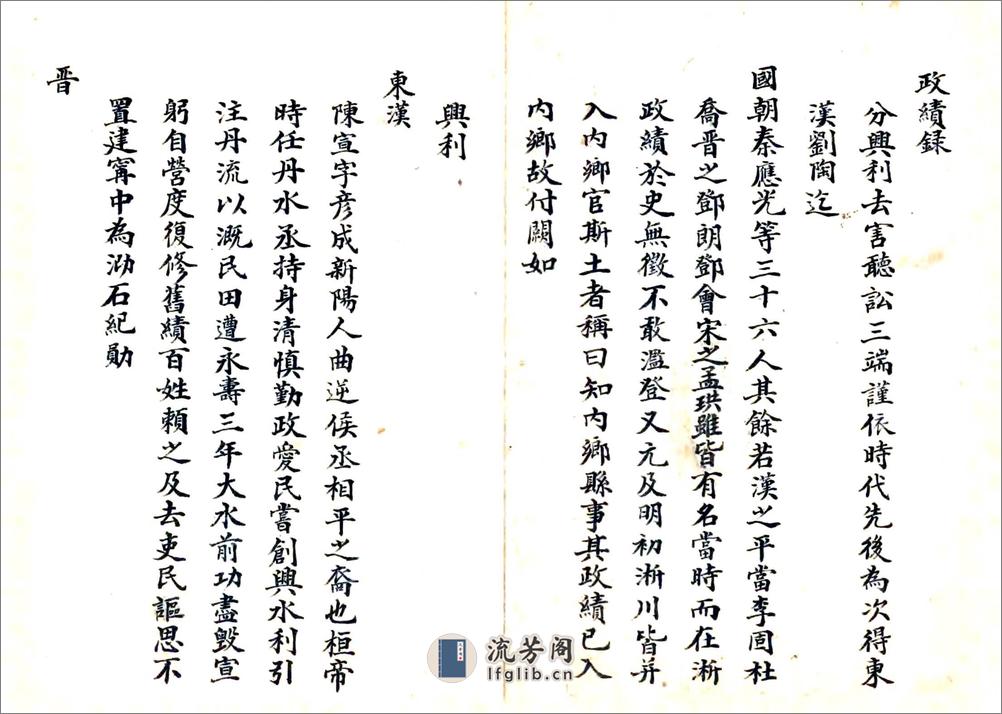 政績録
分興利去害聽訟三端謹依時代先後為次得東
漢劉陶迄
國朝秦應光等三十六人其餘若漢之平當李固杜
喬晋之鄧朗鄧會宋之孟珙雖皆有名當時而在淅
政績於史無徵不敢濫登又元及明初淅川皆并
入内鄉官斯土者稱曰知内鄉縣事其政績已入
内鄉故付闕如
興利
東漢
陳宣字彦成新陽人曲逆侯丞相平之裔也桓帝
時任丹水丞持身清慎勤政愛民嘗創興水利引
注丹流以溉民田遭永壽三年大水前功盡毁宣
躬自營度復修舊績百姓賴之及去吏民謳思不
置建寗中為泐石紀勛
晋
流芳阁
lfglib.cn